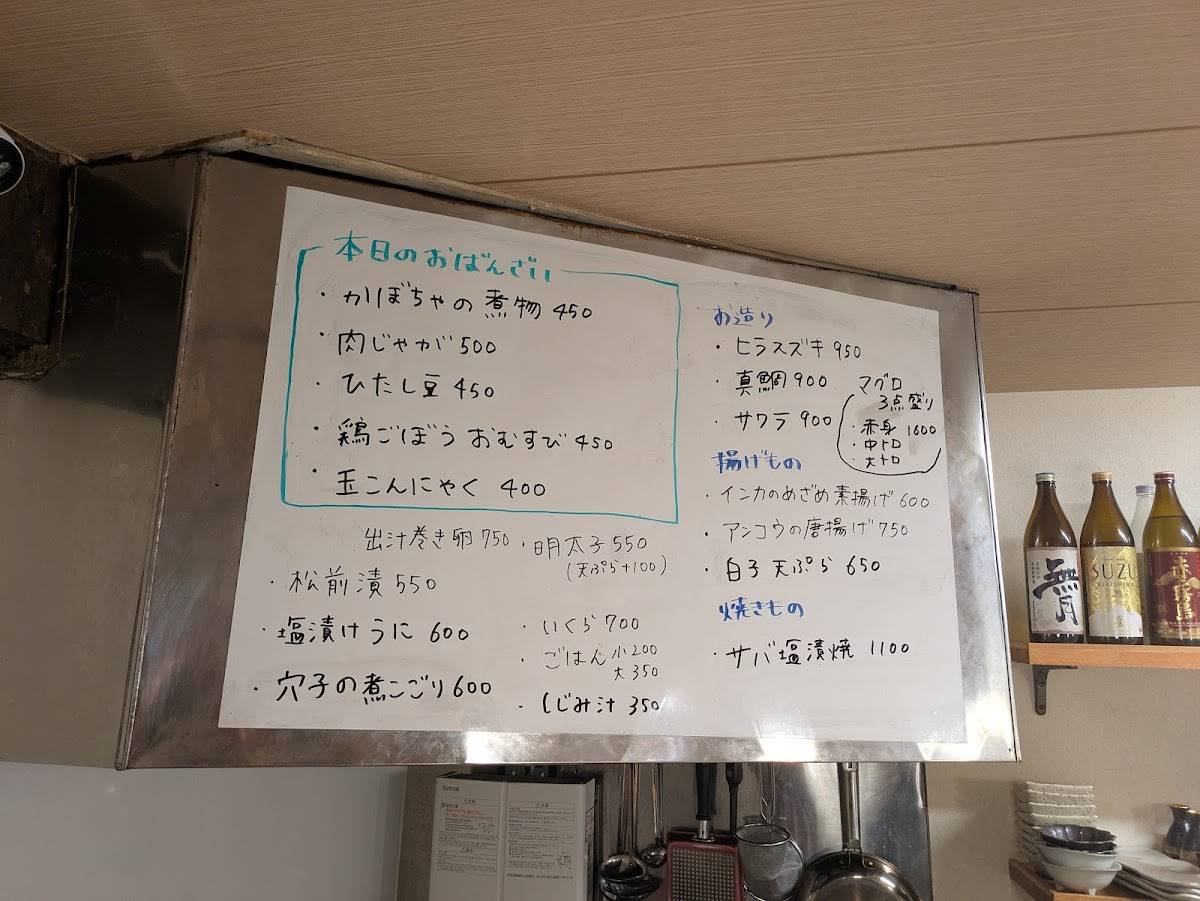 本日のおばんざい
・かぼちゃの煮物 450
・肉じゃが 500
・ひたし豆 450
・鶏ごぼうおむすび 450
・玉こんにゃく 400
出汁巻き卵 750
・松前漬 550
・塩漬けうに 600
・穴子の煮こごり 600
・明太子 550
(天ぷら+100)
・いくら 700
・ごはん 小 200
大 350
・しじみ汁 350
お造り
・ヒラスズキ 950
・真鯛 900
・サワラ 900
マグロ
3点盛り
・赤身 1600
・中トロ
・大トロ
揚げもの
・インカのめざめ素揚げ 600
・アンコウの唐揚げ 750
・白子天ぷら 650
焼きもの
・サバ塩漬焼 1100
無月
SUZU
KIRISHIMA
赤霧島
Rinnai